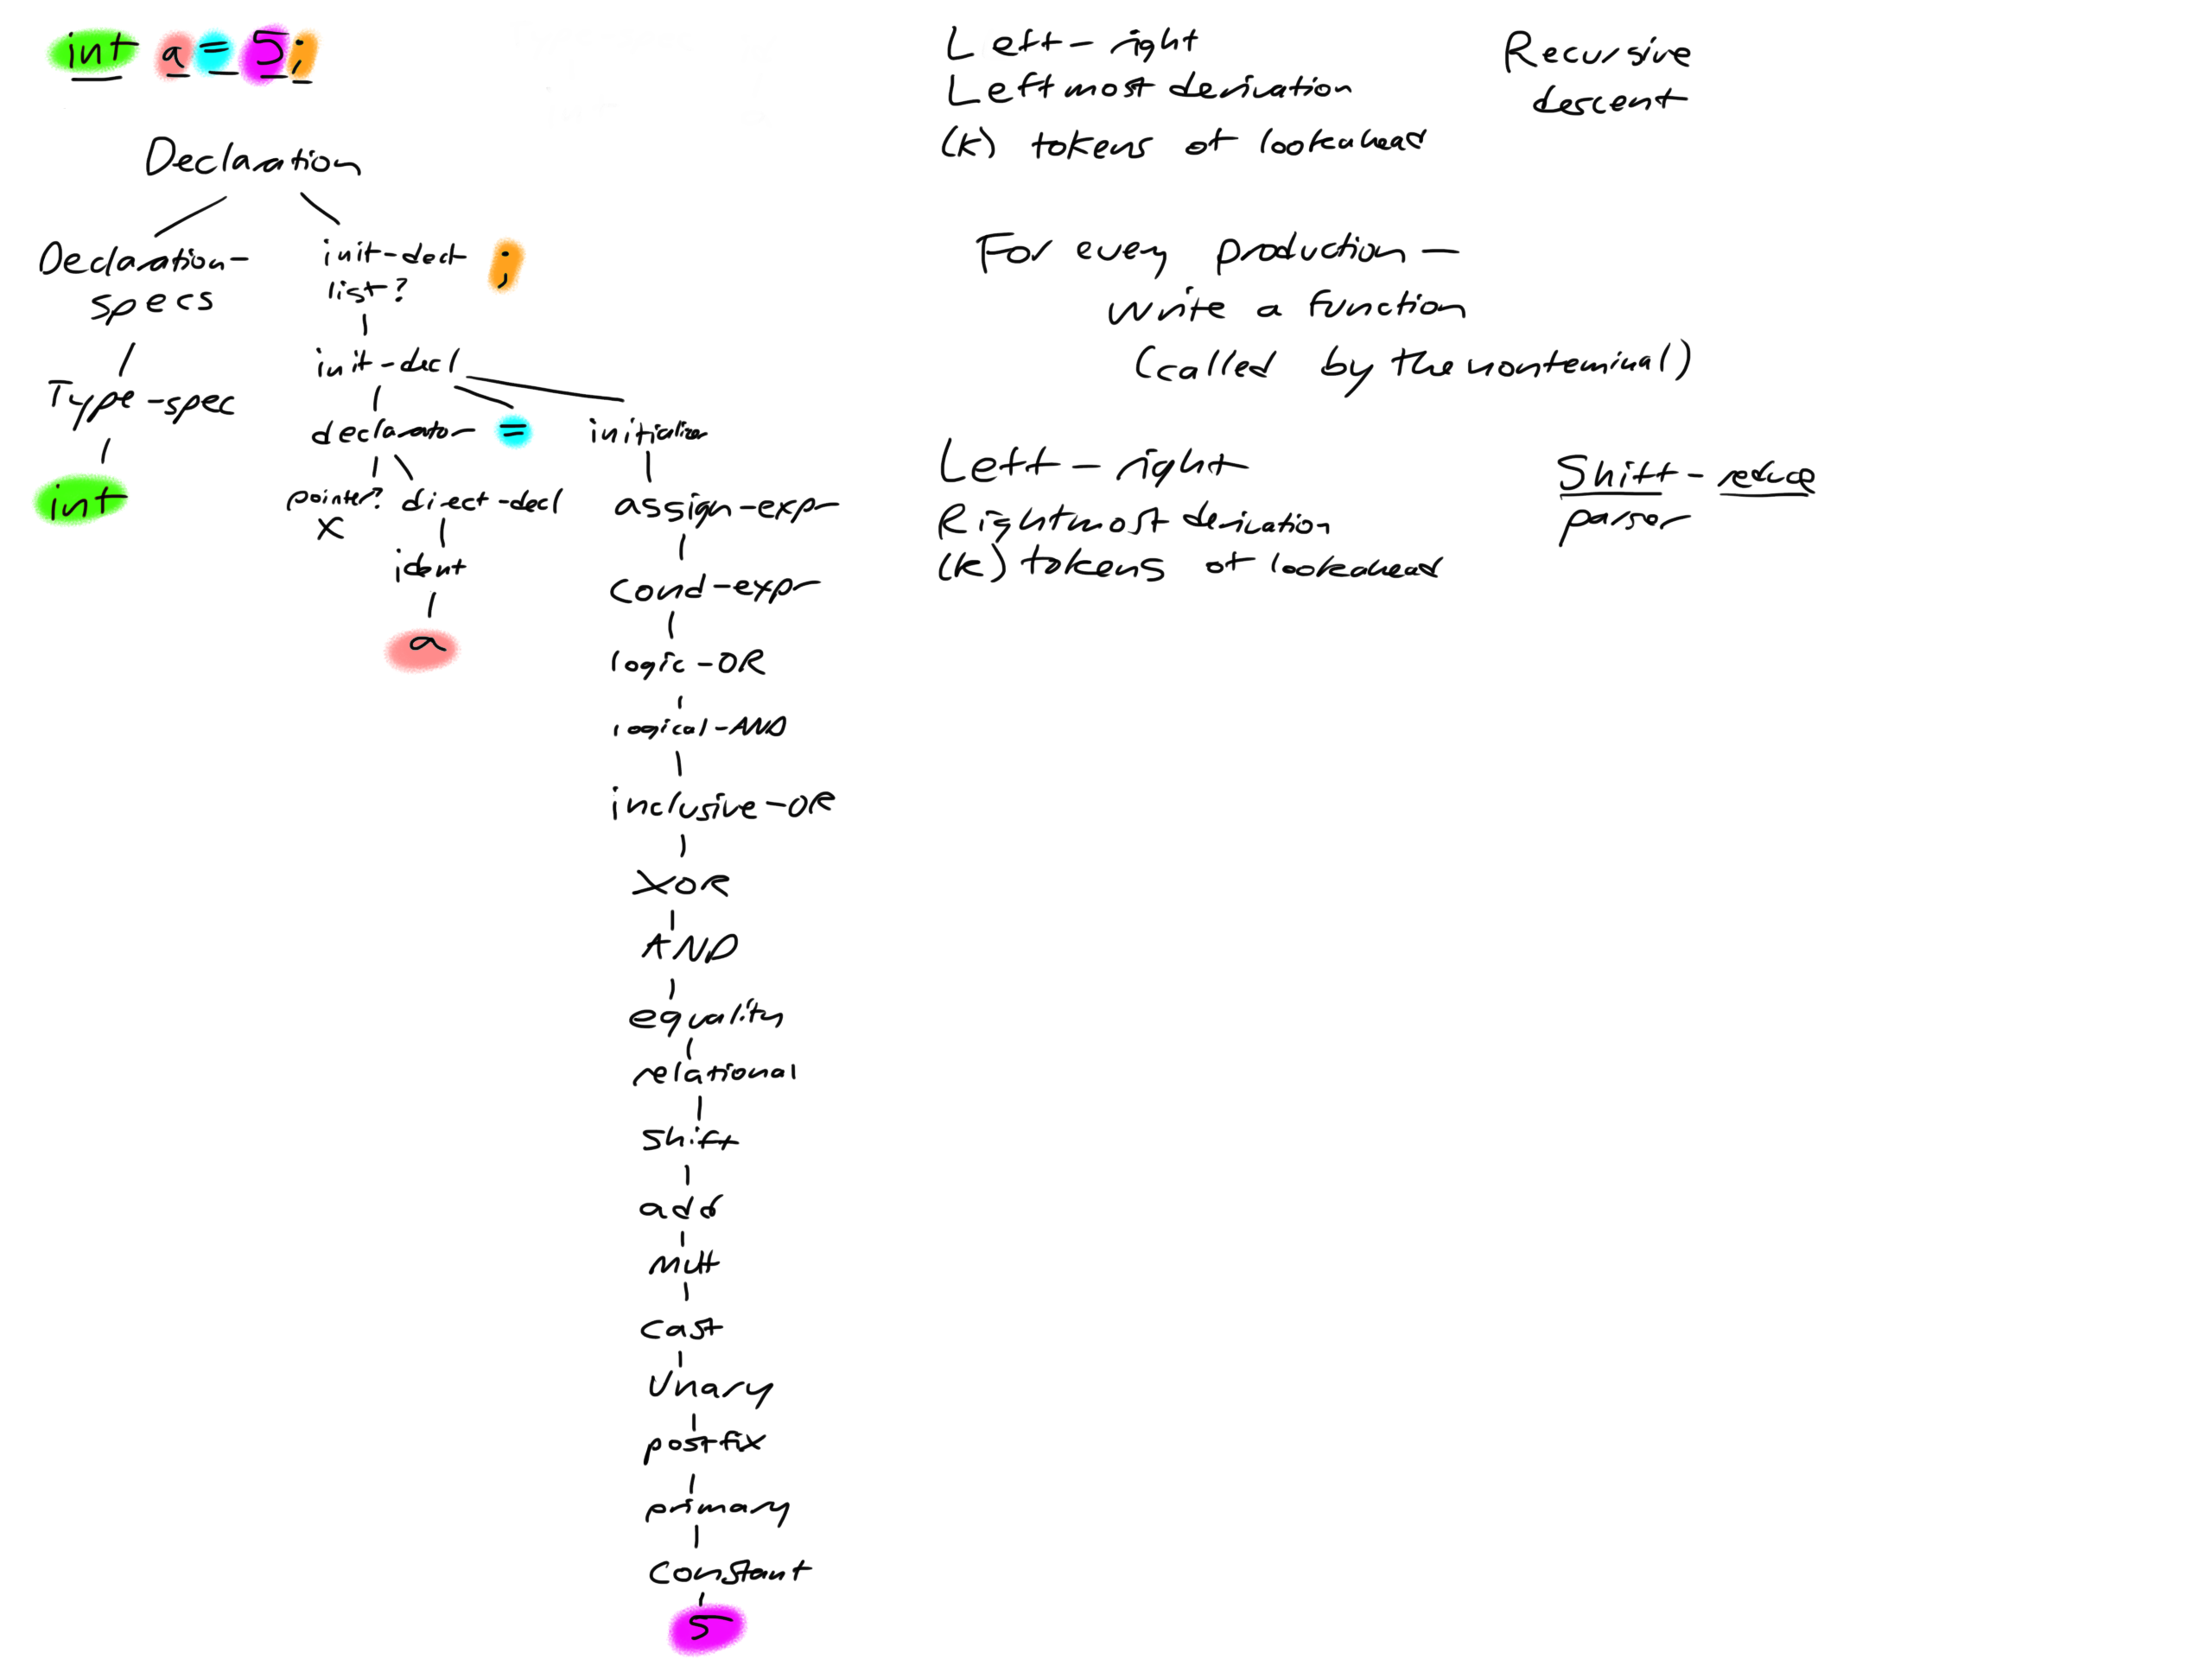 int a = 5;
Declaration
Declaration-
specs
Type-spec
int
init-decl
list?
;
init-decl
declarator = initializer
pointer? direct-decl
X
ident
a
assign-expr
cond-expr
logic-OR
logical-AND
inclusive-OR
XOR
AND
equality
relational
shift
add
mult
cast
Unary
postfix
primary
constant
5
Left-right
Leftmost derivation
(k) tokens of lookahead
Recursive
descent
For every production —
write a function
(called by the nonteminal)
Left-right
Rightmost derivation
(k) tokens of lookahead
Shift-reduce
parser